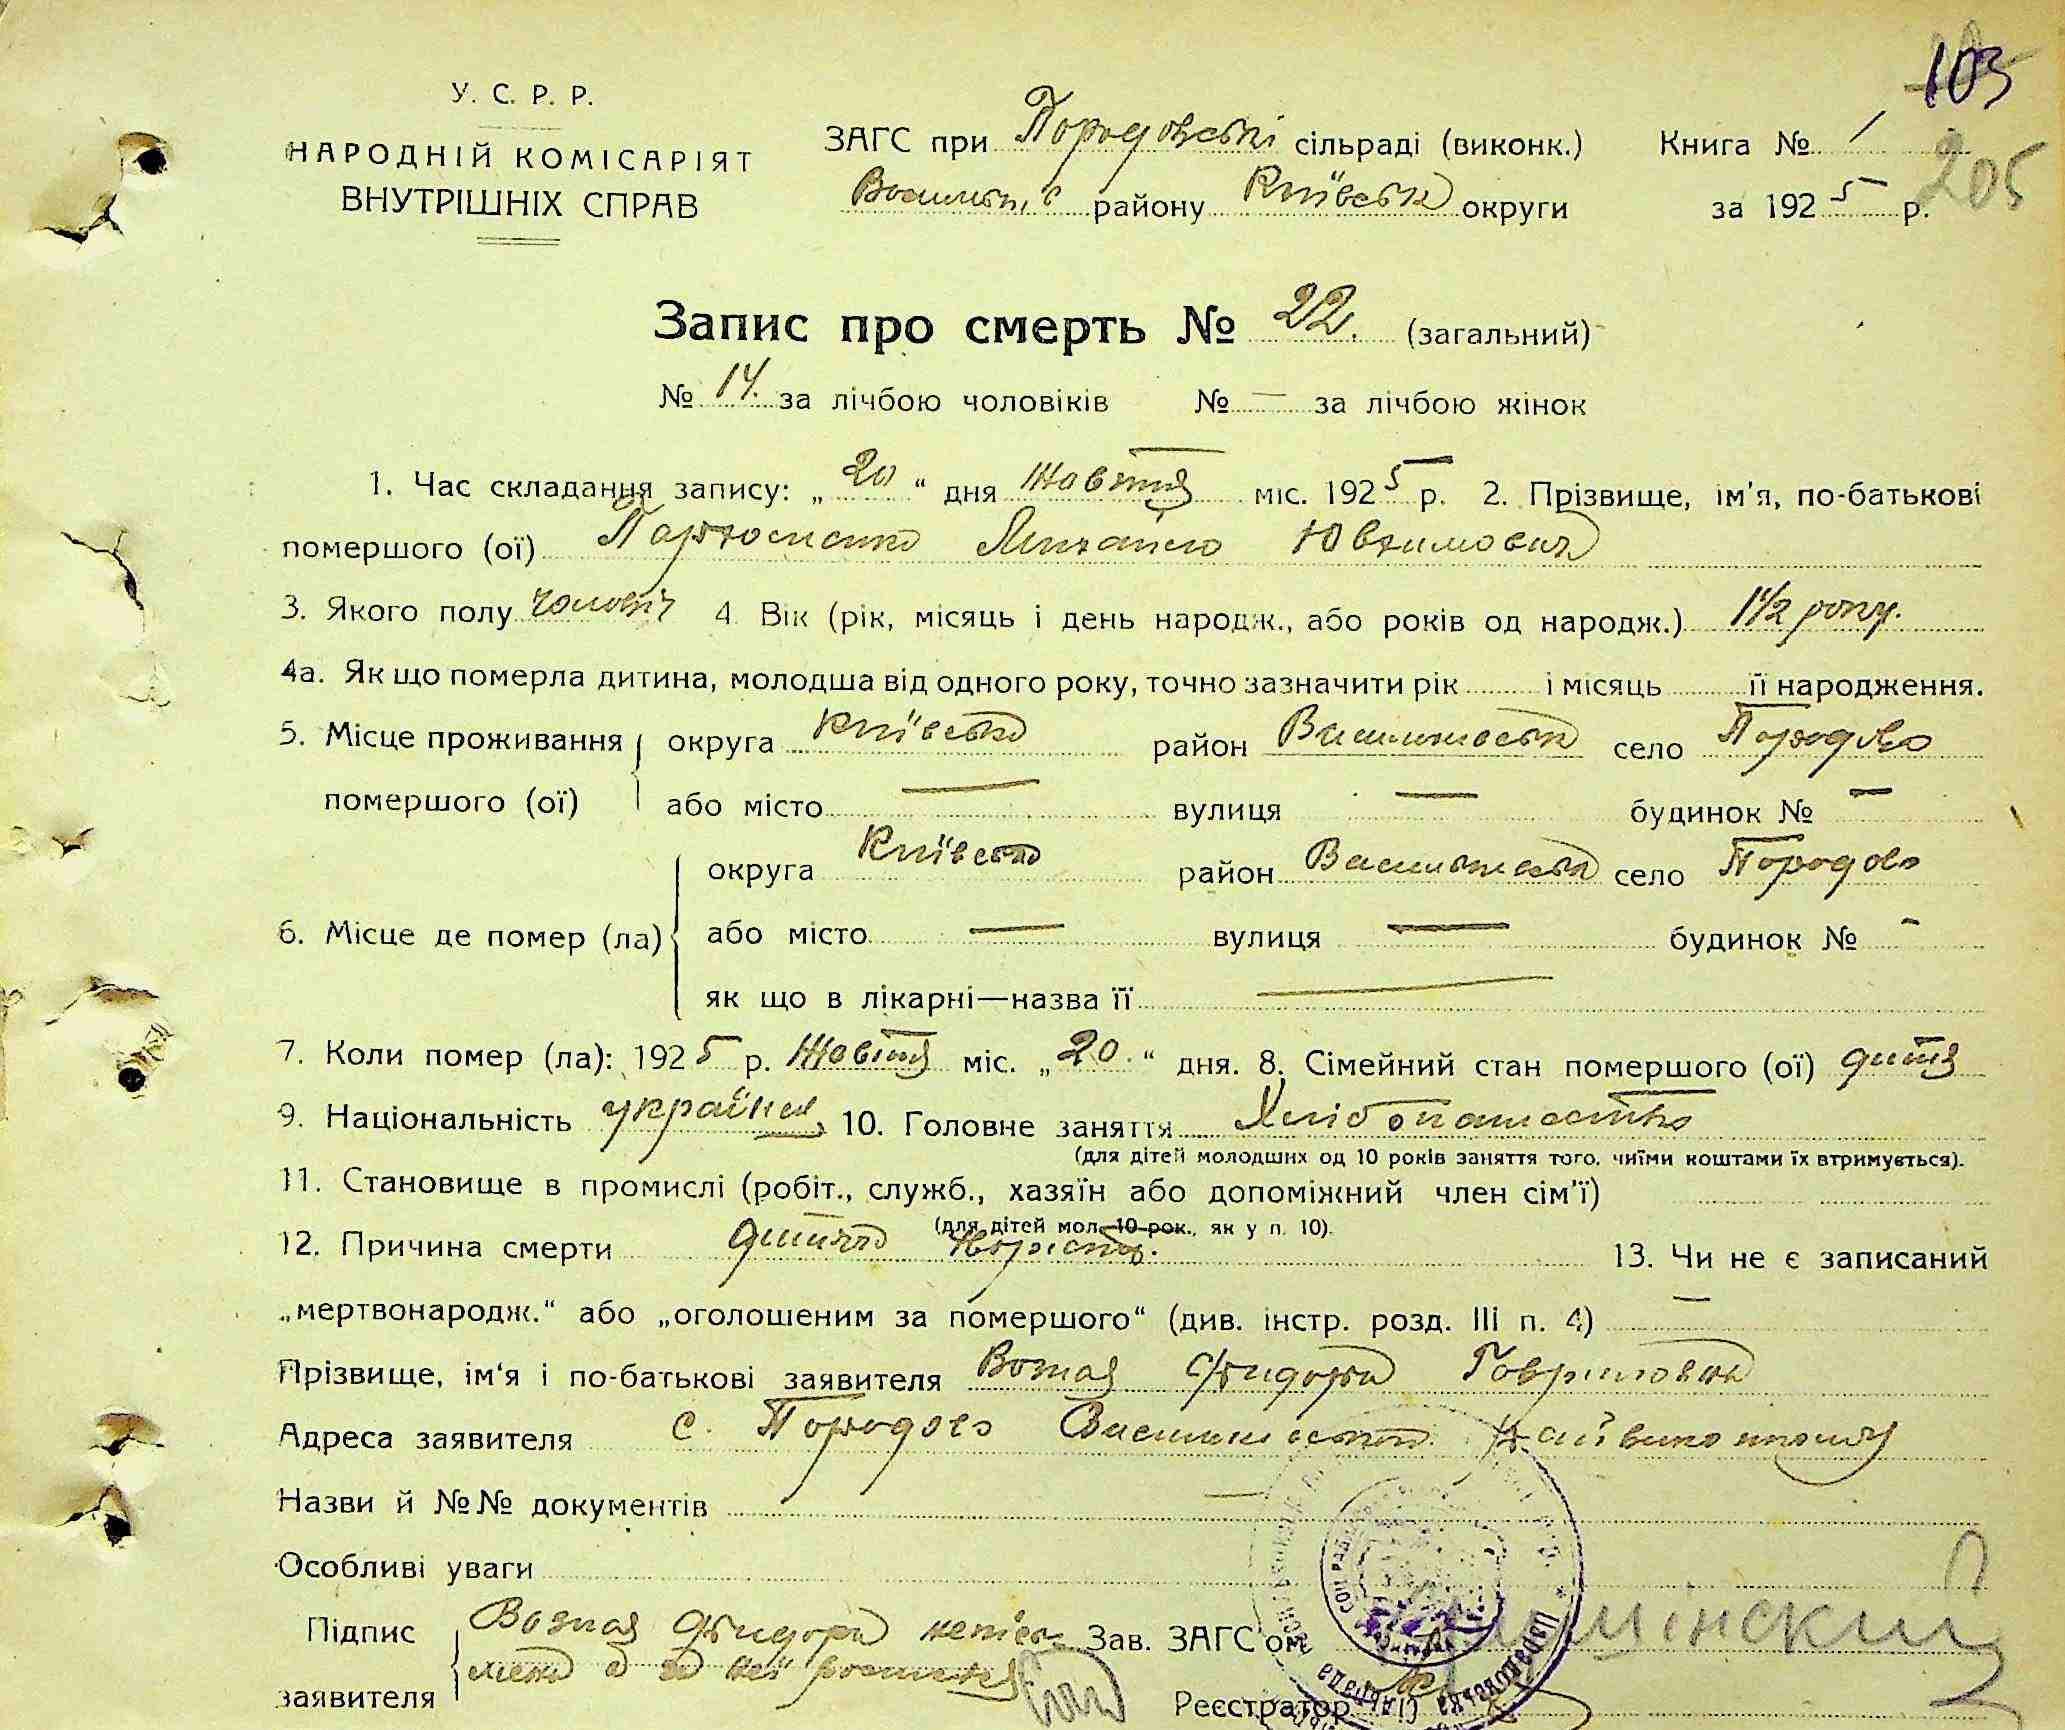 103
205
У. С. Р. Р.
НАРОДНІЙ КОМІСАРІЯТ
ВНУТРІШНІХ СПРАВ
ЗАГС при сільраді (виконк.)
району Київськ округи
Книга № 1
за 1925 р.
Запис про смерть № 22. (загальний)
№ 14. за лічбою чоловіків № — за лічбою жінок
1. Час складання запису: „20“ дня Жовтня міс. 1925 р. 2. Прізвище, ім'я, по-батькові
помершого (ої) Пархоменко Михайло Ювхимович
3. Якого полу чоловіч 4 Вік (рік, місяць і день народж., або років од народж.) 1 1/2 року.
4а. Як що померла дитина, молодша від одного року, точно зазначити рік і місяць її народження.
5. Місце проживання округа Київська район Васильківськ село
помершого (ої) або місто — вулиця — будинок № —
округа Київська район Васильківськ село
6. Місце де помер (ла) або місто — вулиця — будинок № -
як що в лікарні—назва її —
7. Коли помер (ла): 1925 р. Жовтня міс. „20.“ дня. 8. Сімейний стан помершого (ої) дитя
9. Національність 10. Головне заняття Хлібопашество
(для дітей молодших од 10 років заняття того, чиїми коштами їх втримується).
11. Становище в промислі (робіт., служб., хазяїн або допоміжний член сім'ї)
(для дітей мол. 10 рок., як у п. 10).
12. Причина смерти 13. Чи не є записаний
„мертвонародж.“ або „оголошеним за помершого“ (див. інстр. розд. III п. 4) —
Прізвище, ім'я і по-батькові заявителя Возная Гавриловна
Адреса заявителя с.
Назви й №№ документів —
Особливі уваги
Підпис Возная Зав. ЗАГС'ом
заявителя Реєстратор